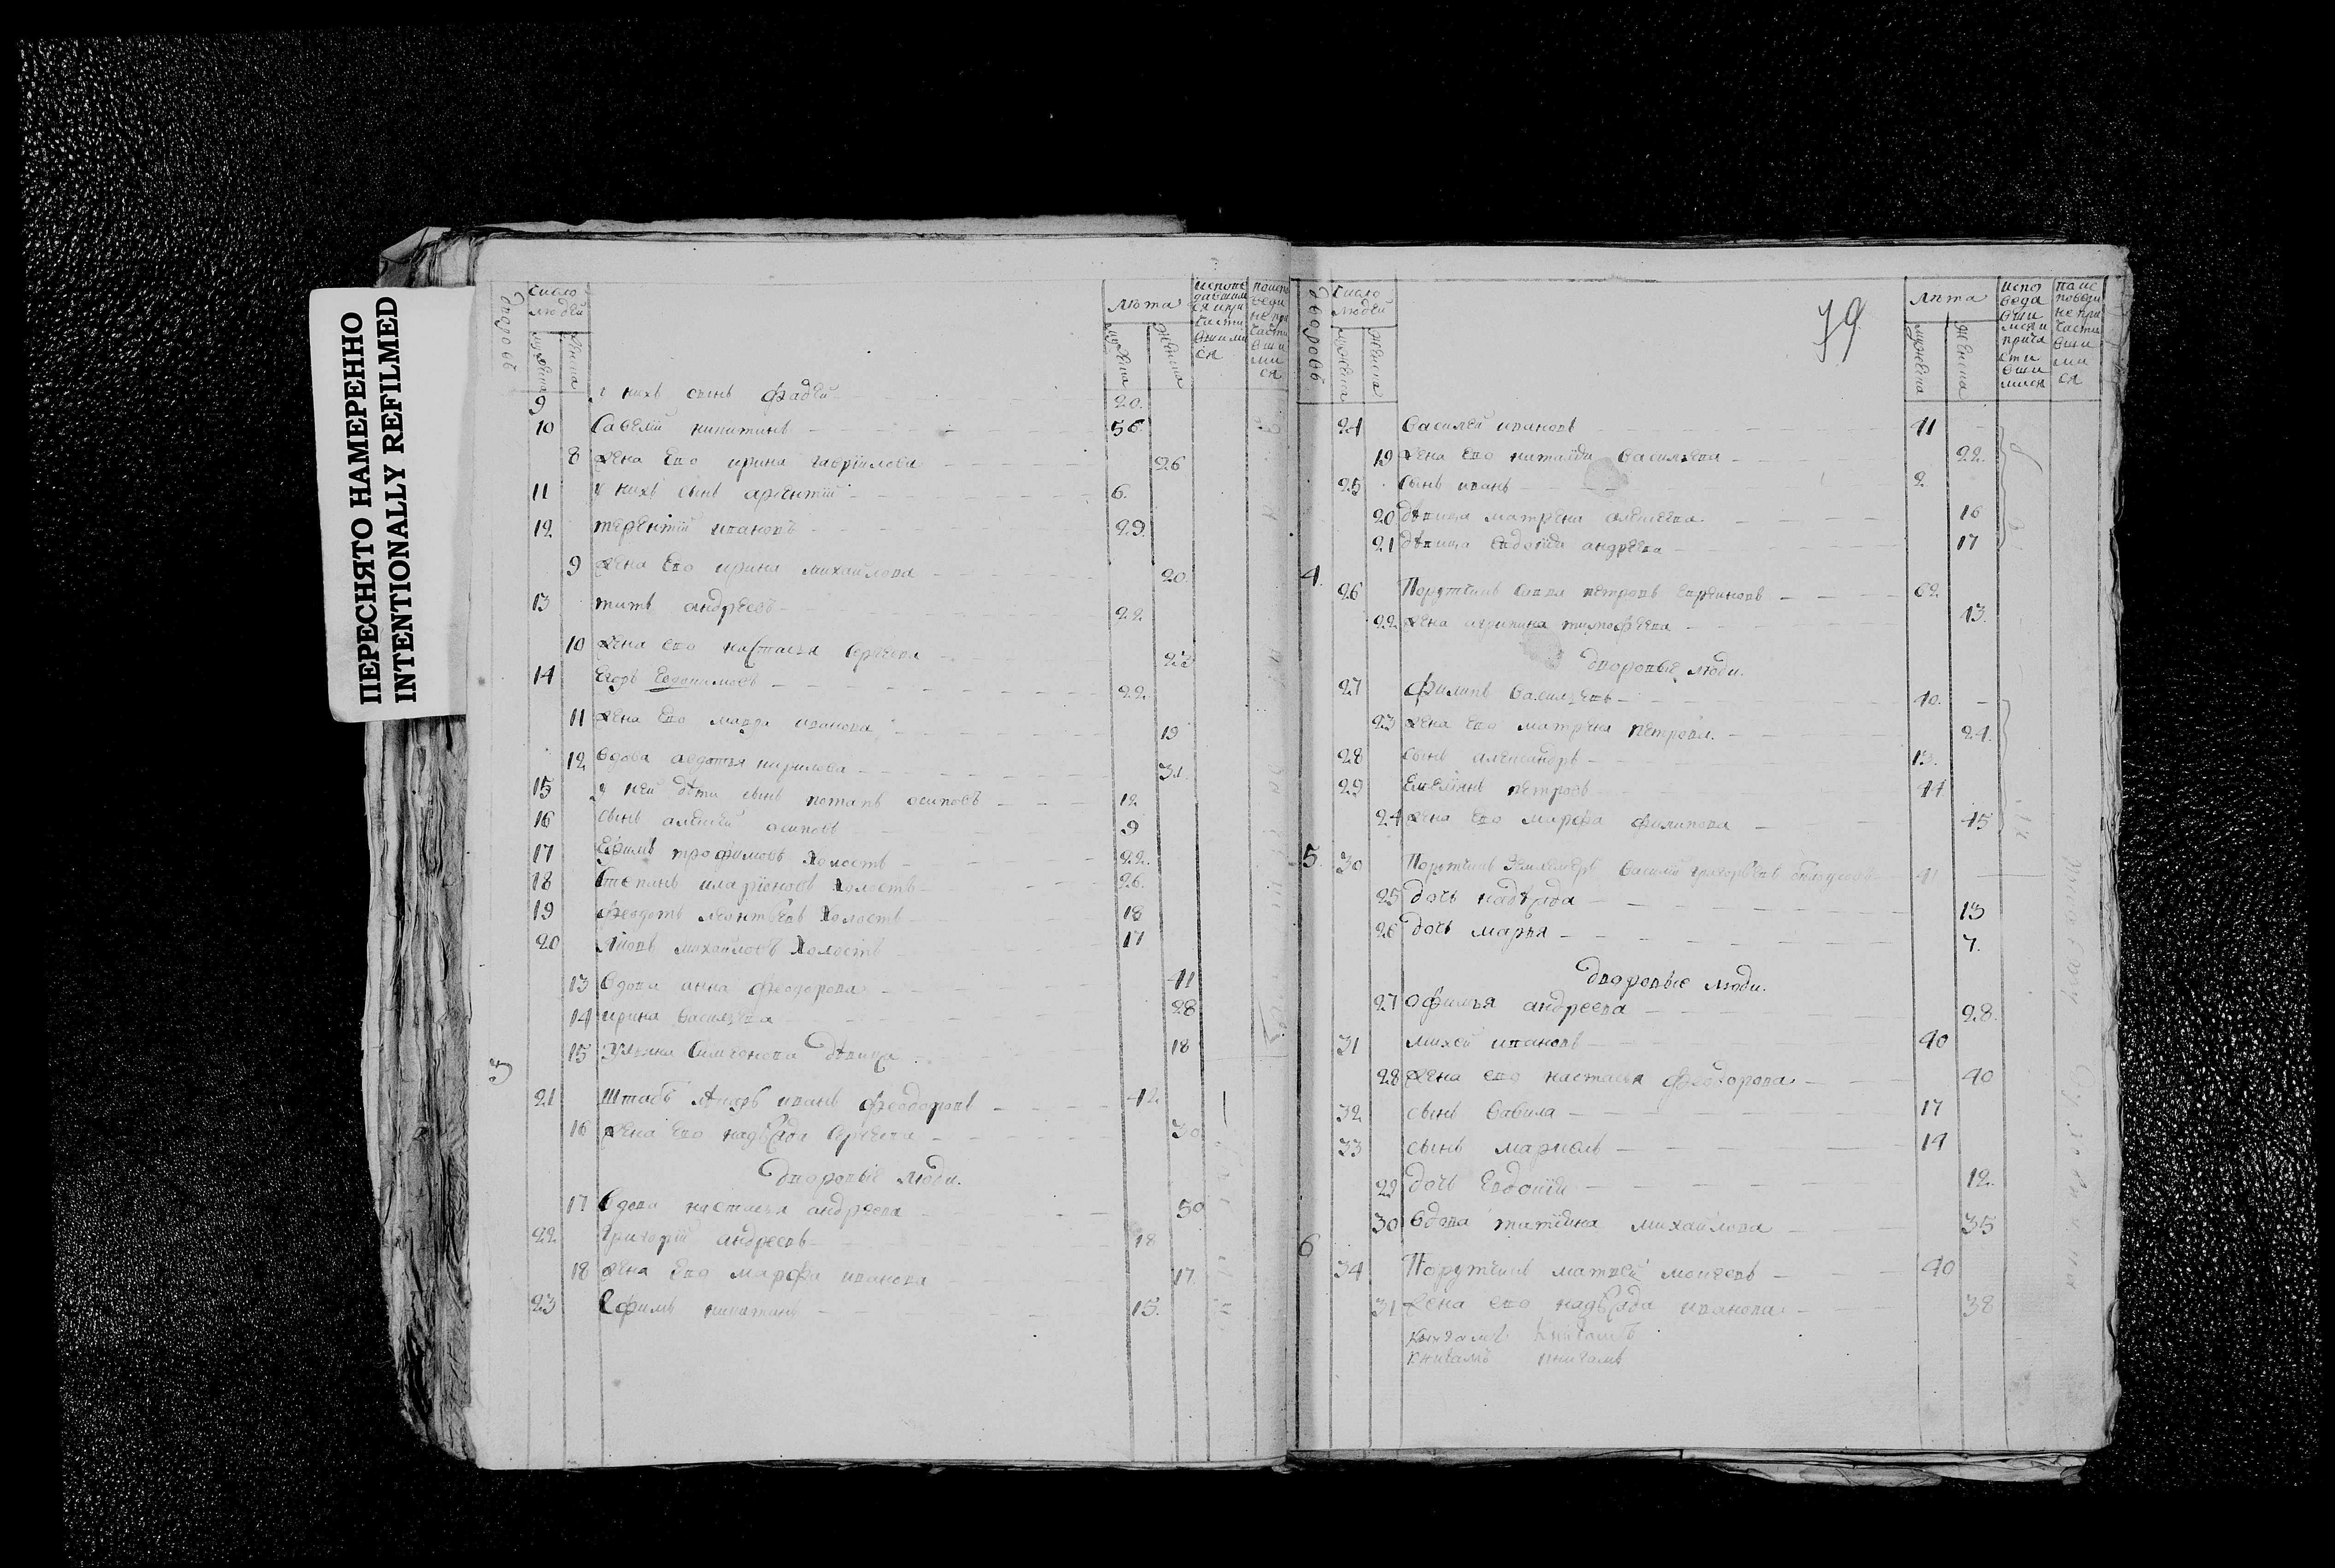 ПЕРЕСНЯТО НАМЕРЕННО
INTENTIONALLY REFILMED
дворовъ
число людей
мужеска
женска
лѣта
мужеска
женска
9 у нихъ сынъ фадѣй 20.
10 Савелій никитинъ 56.
8 жена Его ирина гавріилова 26
11 у нихъ сынъ 6.
12 терентій ивановъ 29.
9 жена Его ирина михаилова 20.
13 титъ андреевъ 22
10 жена его настасья 23
14 Егоръ Евдокимовъ 22.
11 жена Его мавра иванова 19
12 вдова авдотья кирилова 31.
15 у ней дѣти сынъ потапъ осиповъ 12
16 сынъ алексѣй осиповъ 9
17 Ефимъ трофимовъ холостъ 22.
18 Степанъ иларіоновъ холостъ 26.
19 феодотъ леонтьевъ холостъ 18
20 михаиловъ холостъ 17
13 вдова анна феодорова 41
14 ирина васильева 28
15 Ульяна Симеонова дѣвица 18
3
21 Штабъ лѣкарь иванъ феодоровъ 42.
16 жена Его надѣжда 30
дворовые люди.
17 вдова настасья андреева 50
22 григорій андреевъ 18
18 жена Его марфа иванова 17.
23 Ефимъ никитинъ 15.
79
дворовъ
число людей
мужеска
женска
лѣта
мужеска
женска
испо
веда
вши
мися и
прича
сти
вши
мися
по ис
поведи
не при
части
вши
ми
ся
24 василей ивановъ 41
19 жена Его наталія васильева 22.
25 сынъ иванъ 2
20 дѣвица матрена алексѣева 16
21 дѣвица евдокія андреева 17
4.
26 Порутчикъ савва петровъ 62.
22 жена агрипина тимофѣева 43.
дворовые люди.
27 филипъ васильевъ 40.
23 жена его матрена петрова. 24.
28 сынъ александръ 13.
29 Емеліянъ петровъ 44
24 жена Его марфа филипова 45
5.
30 Порутчикъ Землемеръ василій григорьевъ 41
25 дочь надѣжда 13
26 дочь марья 7.
дворовые люди.
27 офимья андреева 28.
31 михей ивановъ 40
28 жена его настасья феодорова 40
32 сынъ вавила 17
33 сынъ 14
29 дочь Евдокія 12.
30 вдова татіана михаилова 35
6
34 Порутчикъ матвей моисеевъ 40
31 жена его надѣжда иванова 38
книгамъ книгамъ
книгамъ книгамъ